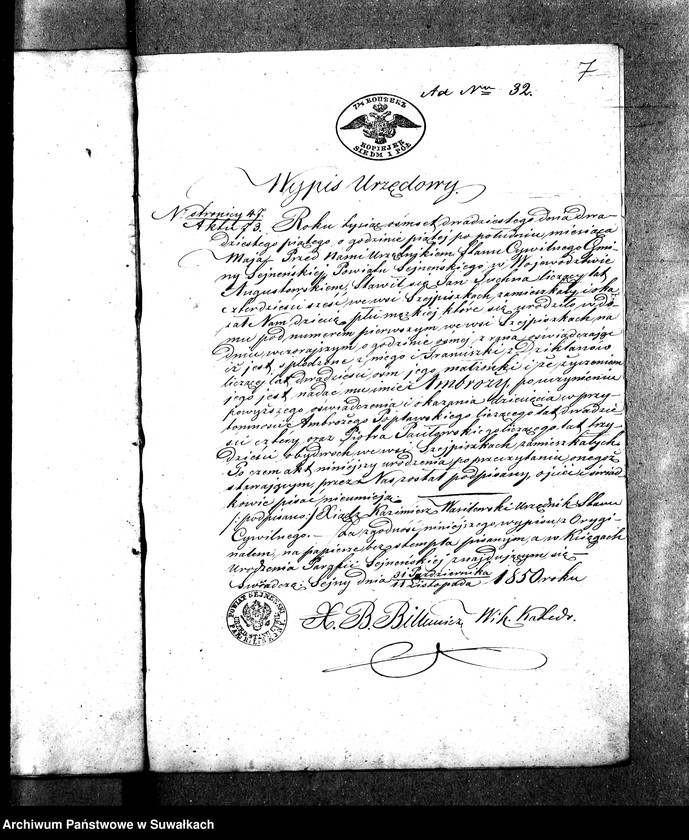 7
Ad Nrm 32.
7½ КОПѢЕКЪ
KOPIEJEK
SIEDM I PÓŁ
Wypis Urzędowy.
Nr stronicy 47.
Aktu 93. Roku tysiąc ośmset dwudziestego dnia dwu-
dziestego piątego o godzinie piątej po południu, miesiąca
Maja. Przed Nami Urzędnikiem Stanu Cywilnego Gmi-
ny Sejneńskiej, Powiatu Sejneńskiego w Województwie
Augustowskiem, Stawił się Jan liczący lat
czterdzieści sześć we wsi Szejpiszkach zamieszkały i oka-
zał Nam dziecię płci męzkiej które się urodziło w do-
mu pod numerem pierwszym we wsi Szejpiszkach na
dniu wczorajszym o godzinie osmej z rana oświadczając
iż jest spłodzone z niego i Franciszki z
liczącej lat dwadzieścia osm jego małżonki i że życzeniem
jego jest nadać mu imie Ambroży, po uczynieniu
powyższego oświadczenia i okazania dziecięcia w przy-
tomności Ambrożego Popławskiego liczącego lat dwadzie-
ścia cztery oraz Piotra liczącego lat trzy-
dzieści obydwóch we wsi Szejpiszkach zamieszkałych.
Po czem akt niniejszy urodzenia po przeczytaniu onegoż
stawającym, przez Nas został podpisany, ojciec i świad-
kowie pisać nieumieją.
/:podpisano:/ Xiądz Kazimierz Urzędnik Stanu
Cywilnego. — Za zgodność niniejszego wypisu z Orygi-
nałem, na papierze bez stempla pisanym, a w Księgach
Urodzenia Parafii Sejneńskiej znajdującym się
Świadczę: Sejny dnia 31 Października
11 Listopada 1850 roku
X. B. Billewicz Wik. Katedr.
POWIAT SEJNEŃSKI
Archiwum Państwowe w Suwałkach